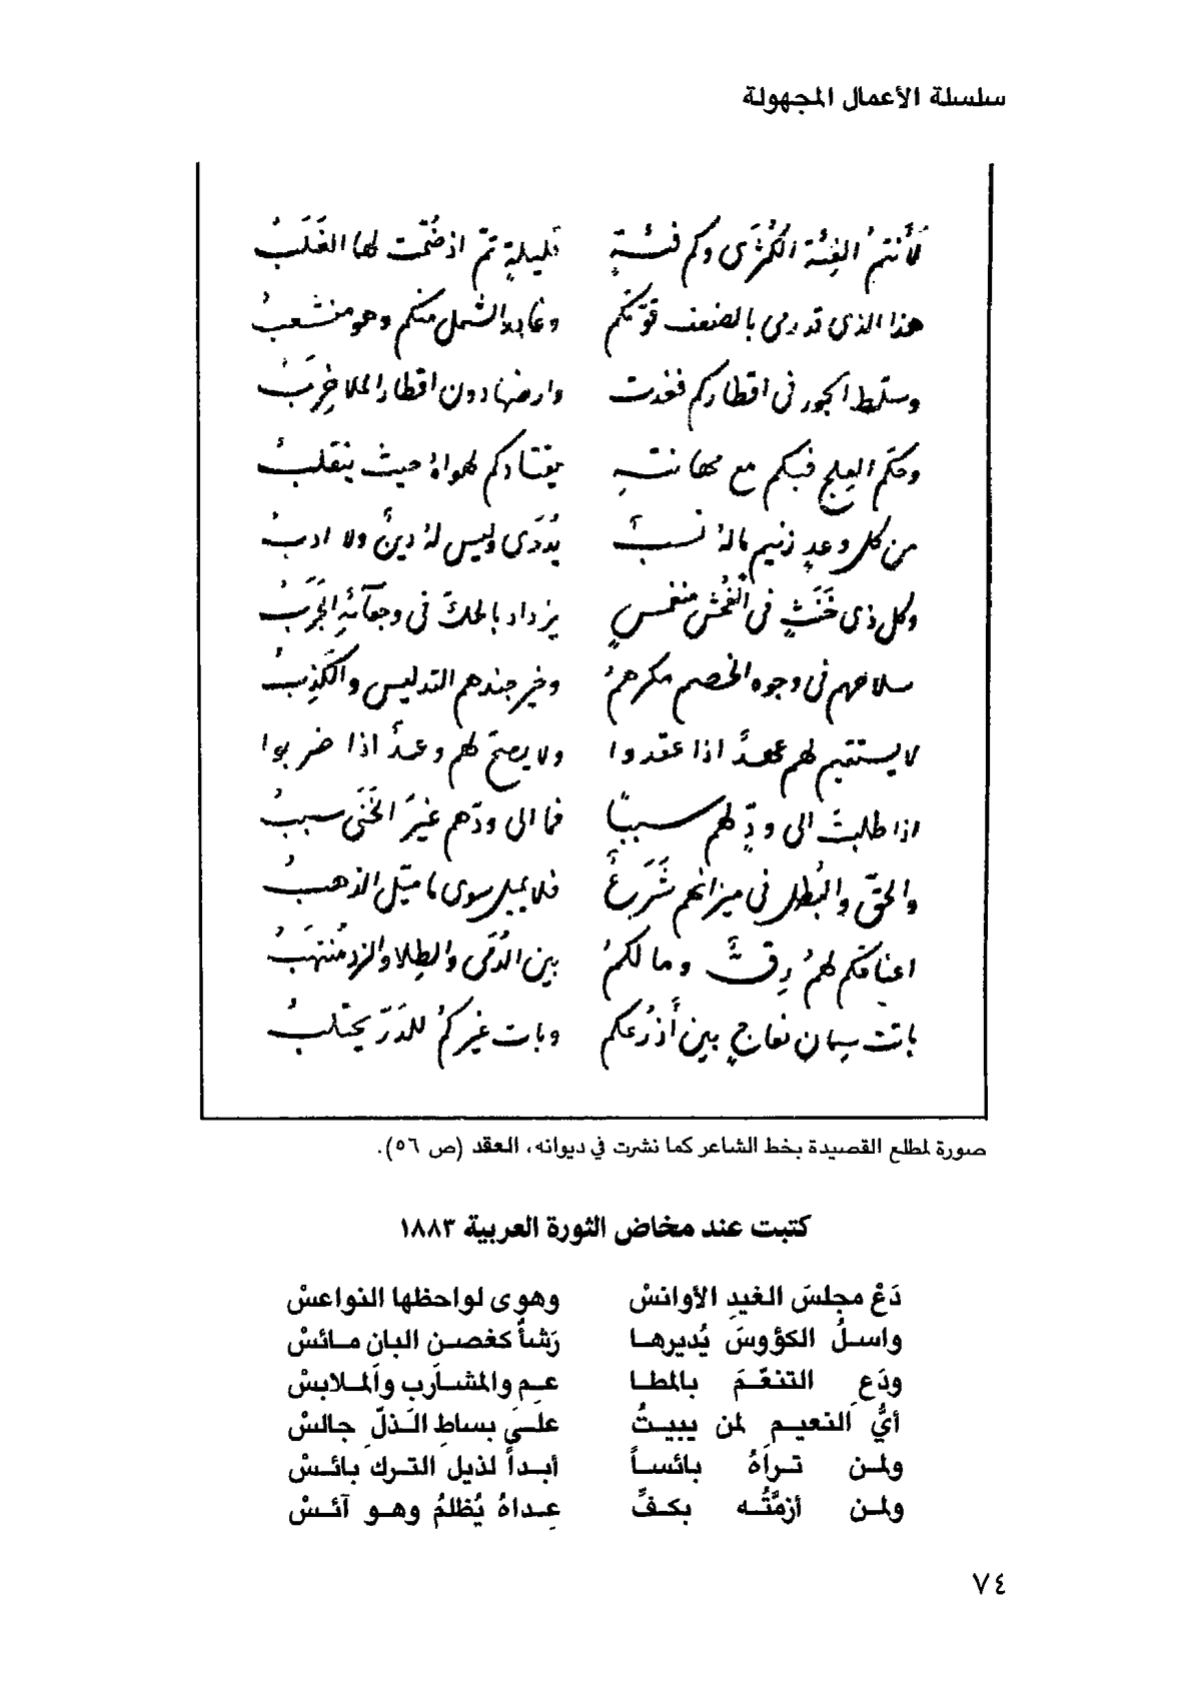 سلسلة الأعمال المجهولة
لَأَنتمُ الفِئة الكُثرَى وكم فئةٍ قليلةٍ تمّ اذ ضُمّت لها الغَلَبُ
هذا الذى قد رمى بالضعف قوّتكم وغادر الشمل منكم وهو منشعبُ
وسلّط الجور فى اقطاركم فغدت وارضها دون اقطار الملا خِرَبُ
وحكّم العِلج فيكم مع مهانتهِ يقتادكم لهواهُ حيث ينقلبُ
من كل وغدٍ زنيمٍ مالهُ نسبٌ يُدرَى وليس لهُ دينٌ ولا ادبُ
وكل ذى خَنَثٍ فى الفُحش منغمسٍ يزداد بالحكّ فى وجعآئهِ الجَرَبُ
سلاحهم فى وجوه الخصم مكرهمُ وخير جندهم التدليس والكَذِبُ
لا يستقيم لهم عهدٌ اذا عقدوا ولا يصحّ لهم وعدٌ اذا ضربوا
اذا طلبتَ الى ودٍّ لهم سبباً فما الى ودّهم غيرَ الخَنَى سببُ
والحقّ والبُطل فى ميزانهم شَرَعٌ فلا يميل سوى ما ميّل الذهبُ
اعناقكم لهمُ رِقٌّ وما لكمُ بين الدُمَى والطِلا والنرد مُنتهَبُ
باتت سِمان نعاجٍ بين أَذرُعكم وبات غيركمُ للدَرّ يحتلبُ
صورة لمطلع القصيدة بخط الشاعر كما نشرت في ديوانه، العقد (ص ٥٦).
كتبت عند مخاض الثورة العربية ١٨٨٣
دَعْ مجلسَ الغيدِ الأوانسْ وهوى لواحظها النواعسْ
واسلُ الكؤوسَ يُديرها رَشأٌ كغصن البان مائسْ
ودَع التنعّمَ بالمطا عم والمشارب والملابسْ
أيُّ النعيم لمن يبيتُ على بساطِ الذلّ جالسْ
ولمن تراهُ بائساً أبداً لذيل الترك بائسْ
ولمن أزمَّتُه بكفِّ عِداهُ يُظلمُ وهو آئسْ
٧٤